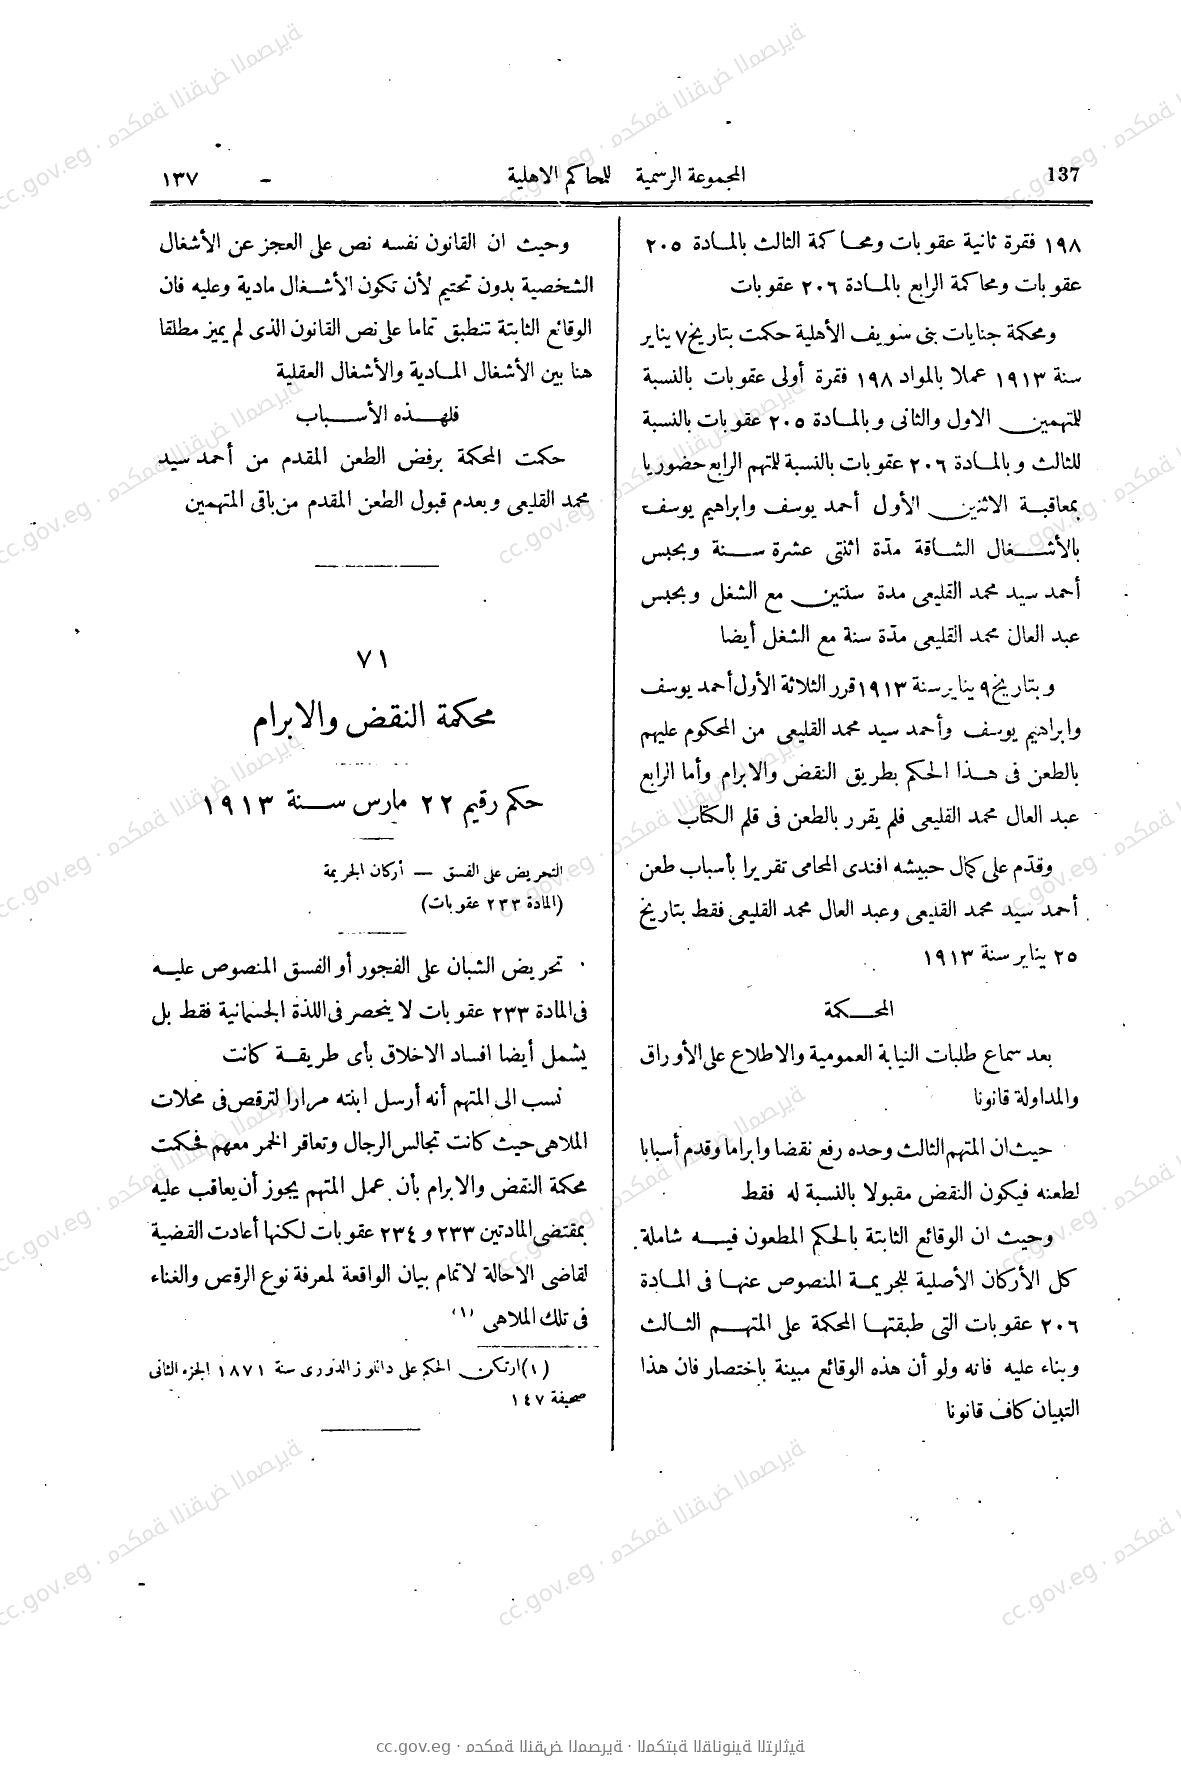 137
المجموعة الرسمية للمحاكم الاهلية
١٣٧
١٩٨ فقرة ثانية عقوبات ومحاكمة الثالث بالمادة ٢٠٥
عقوبات ومحاكمة الرابع بالمادة ٢٠٦ عقوبات
ومحكمة جنايات بنى سويف الأهلية حكمت بتاريخ ٧ يناير
سنة ١٩١٣ عملا بالمواد ١٩٨ فقرة أولى عقوبات بالنسبة
للتهمين الاول والثانى وبالمادة ٢٠٥ عقوبات بالنسبة
للثالث وبالمادة ٢٠٦ عقوبات بالنسبة للتهم الرابع حضوريا
بمعاقبة الاثنين الأول أحمد يوسف وابراهيم يوسف
بالأشغال الشاقة مدّة اثنتى عشرة سنة وبحبس
أحمد سيد محمد القليعى مدة سنتين مع الشغل وبحبس
عبد العال محمد القليعى مدّة سنة مع الشغل أيضا
وبتاريخ ٩ يناير سنة ١٩١٣ قرر الثلاثة الأول أحمد يوسف
وابراهيم يوسف وأحمد سيد محمد القليعى من المحكوم عليهم
بالطعن فى هذا الحكم بطريق النقض والابرام وأما الرابع
عبد العال محمد القليعى فلم يقرر بالطعن فى قلم الكتاب
وقدّم على كمال حبيشه افندى المحامى تقريرا بأسباب طعن
أحمد سيد محمد القليعى وعبد العال محمد القليعى فقط بتاريخ
٢٥ يناير سنة ١٩١٣
المحكمة
بعد سماع طلبات النيابة العمومية والاطلاع على الأوراق
والمداولة قانونا
حيث ان المتهم الثالث وحده رفع نقضا وابراما وقدم أسبابا
لطعنه فيكون النقض مقبولا بالنسبة له فقط
وحيث ان الوقائع الثابتة بالحكم المطعون فيه شاملة
كل الأركان الأصلية للجريمة المنصوص عنها فى المادة
٢٠٦ عقوبات التى طبقتها المحكمة على المتهم الثالث
وبناء عليه فانه ولو أن هذه الوقائع مبينة باختصار فان هذا
التبيان كاف قانونا
وحيث ان القانون نفسه نص على العجز عن الأشغال
الشخصية بدون تحتيم لأن تكون الأشغال مادية وعليه فان
الوقائع الثابتة تنطبق تماما على نص القانون الذى لم يميز مطلقا
هنا بين الأشغال المادية والأشغال العقلية
فلهذه الأسباب
حكمت المحكمة برفض الطعن المقدم من أحمد سيد
محمد القليعى وبعدم قبول الطعن المقدم من باقى المتهمين
٧١
محكمة النقض والابرام
حكم رقيم ٢٢ مارس سنة ١٩١٣
التحريض على الفسق — أركان الجريمة
(المادة ٢٣٣ عقوبات)
تحريض الشبان على الفجور أو الفسق المنصوص عليه
فى المادة ٢٣٣ عقوبات لا ينحصر فى اللذة الجسمانية فقط بل
يشمل أيضا افساد الاخلاق بأى طريقة كانت
نسب الى المتهم أنه أرسل ابنته مرارا لترقص فى محلات
الملاهى حيث كانت تجالس الرجال وتعاقر الخمر معهم فحكمت
محكمة النقض والابرام بأن عمل المتهم يجوز أن يعاقب عليه
بمقتضى المادتين ٢٣٣ و ٢٣٤ عقوبات لكنها أعادت القضية
لقاضى الاحالة لاتمام بيان الواقعة لمعرفة نوع الرقص والغناء
فى تلك الملاهى (١)
(١) ارتكن الحكم على دالوز الدورى سنة ١٨٧١ الجزء الثانى
صحيفة ١٤٧
cc.gov.eg · محكمة النقض المصرية · المكتبة القانونية التراثية